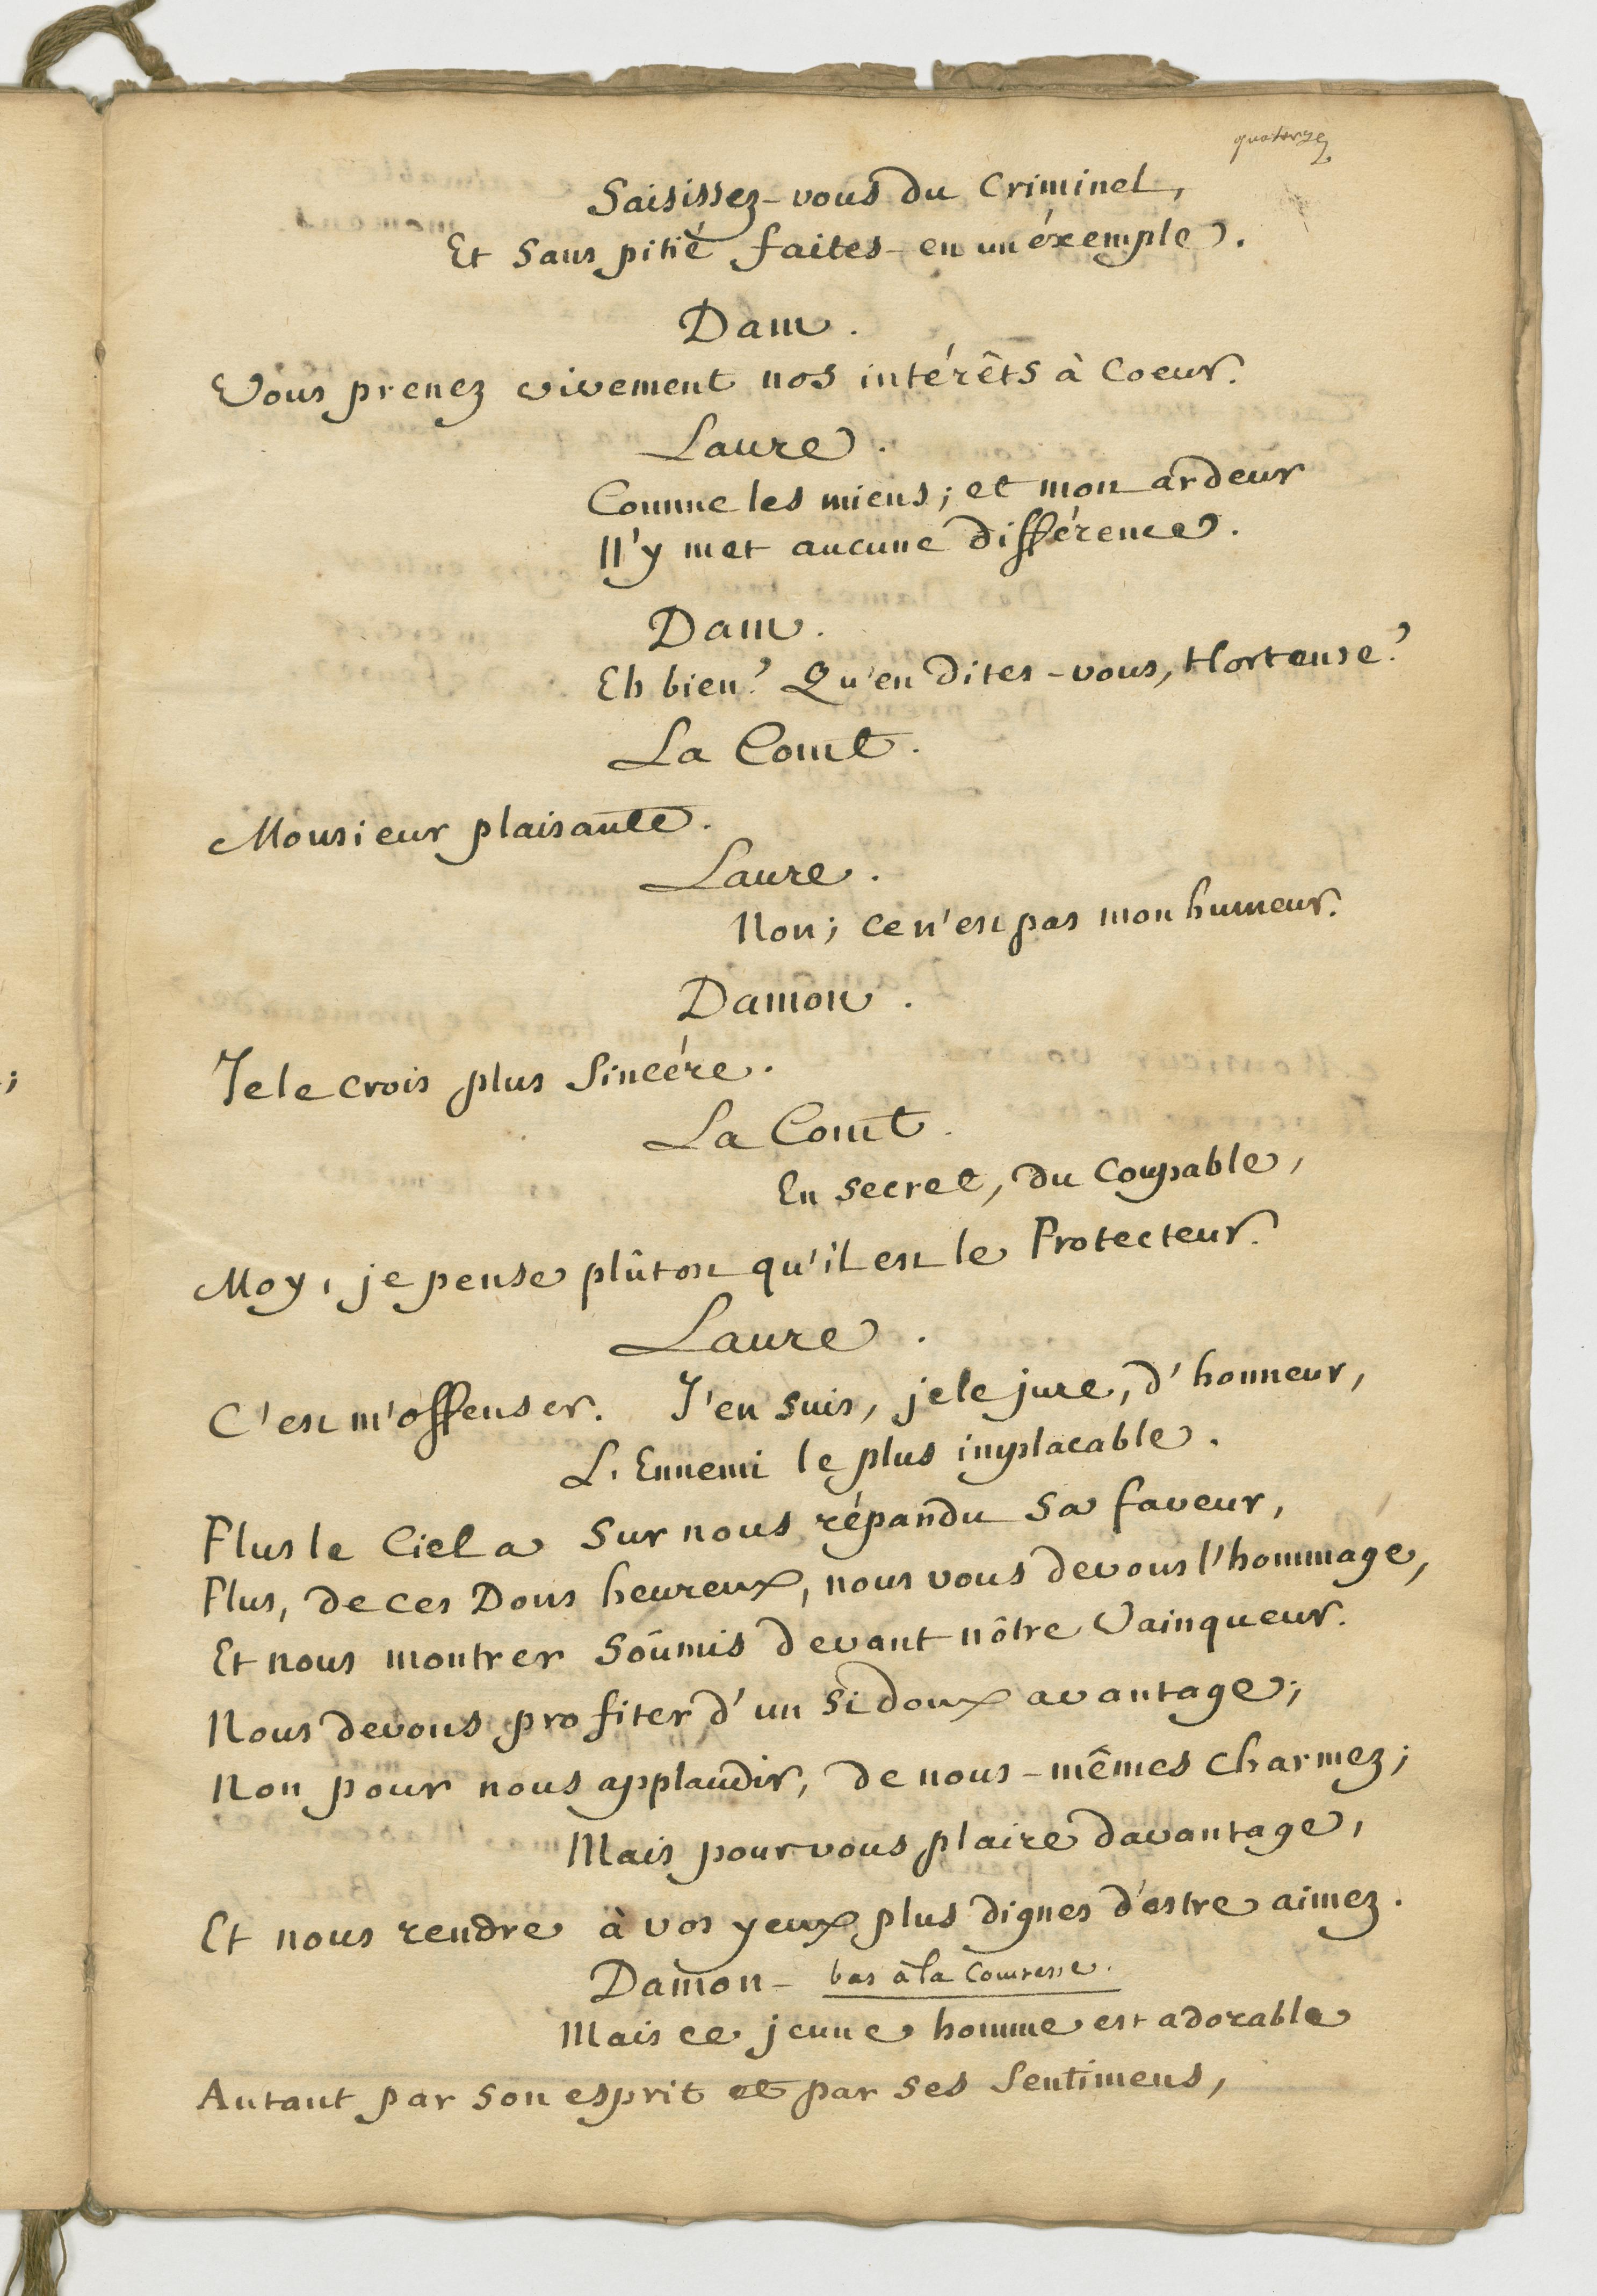 quatorze
Saisissez-vous du Criminel,
Et sans pitié faites-en un éxemple.
Dam.
Vous prenez vivement nos intérêts à Coeur.
Laure.
Comme les miens; et mon ardeur
N'y met aucune différence.
Dam.
Eh bien? Qu'en dites-vous, Hortense?
La Comt.
Monsieur plaisante.
Laure.
Non; ce n'est pas mon humeur.
Damon.
Je le crois plus Sincére.
La Comt.
En secret, du Coupable,
Moy, je pense plûtost qu'il est le Protecteur.
Laure.
C'est m'offenser. J'en suis, je le jure, d'honneur,
L'Ennemi le plus implacable.
Plus le Ciel a sur nous répandu sa faveur,
Plus, de ces Dons heureux, nous vous devons l'hommage,
Et nous montrer soûmis devant nôtre Vainqueur.
Nous devons profiter d'un si doux avantage;
Non pour nous applaudir, de nous-mêmes charmez;
Mais pour vous plaire davantage,
Et nous rendre à vos yeux plus dignes d'estre aimez.
Damon - bas à la Comtesse.
Mais ce jeune homme est adorable
Autant par son esprit et par ses Sentimens,
;